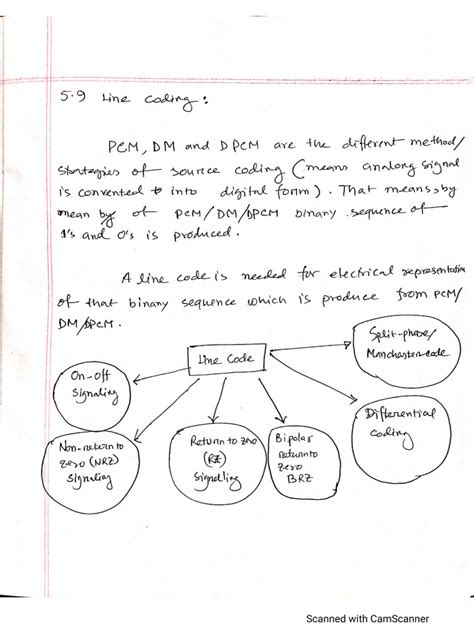 5.9 Line coding:
PCM, DM and DPCM are the different method/
stortegies of source coding (means analong signal
is convented to into digital form). That means, by
mean by of PCM/DM/DPCM binary sequence of
1's and 0's is produced.
A line code is needed for electrical representation
of that binary sequence which is produce from PCM/
DM/DPCM.
Line Code
Split-phase/
Manchester code
On-off
signaling
Differential
coding
Non-return to
zero (NRZ)
signaling
Return to zero
(RZ)
signelling
Bipolar
Return to
zero
BRZ
Scanned with CamScanner